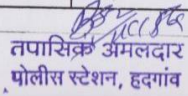 तपासिक अंमलदार
पोलीस स्टेशन, हदगांव